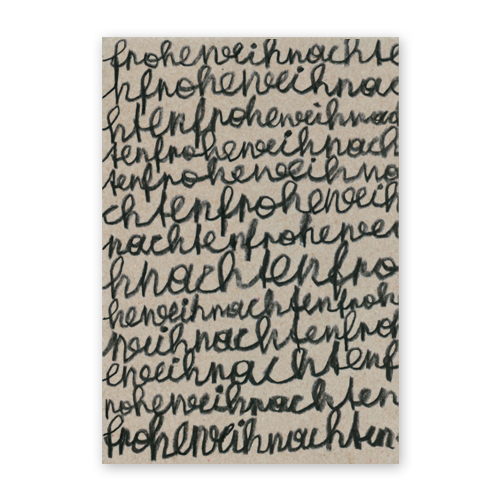 froheweihnachte
nfroheweihnac
htenfroheweihnac
tenfroheweihnach
tenfroheweihna
chtenfroheweih
nachtenfrohewei
hnachtenfro
heweihnachtenfroh
eweihnachtenfroh
eweihnachtenf
roheweihnachten
froheweihnachten.